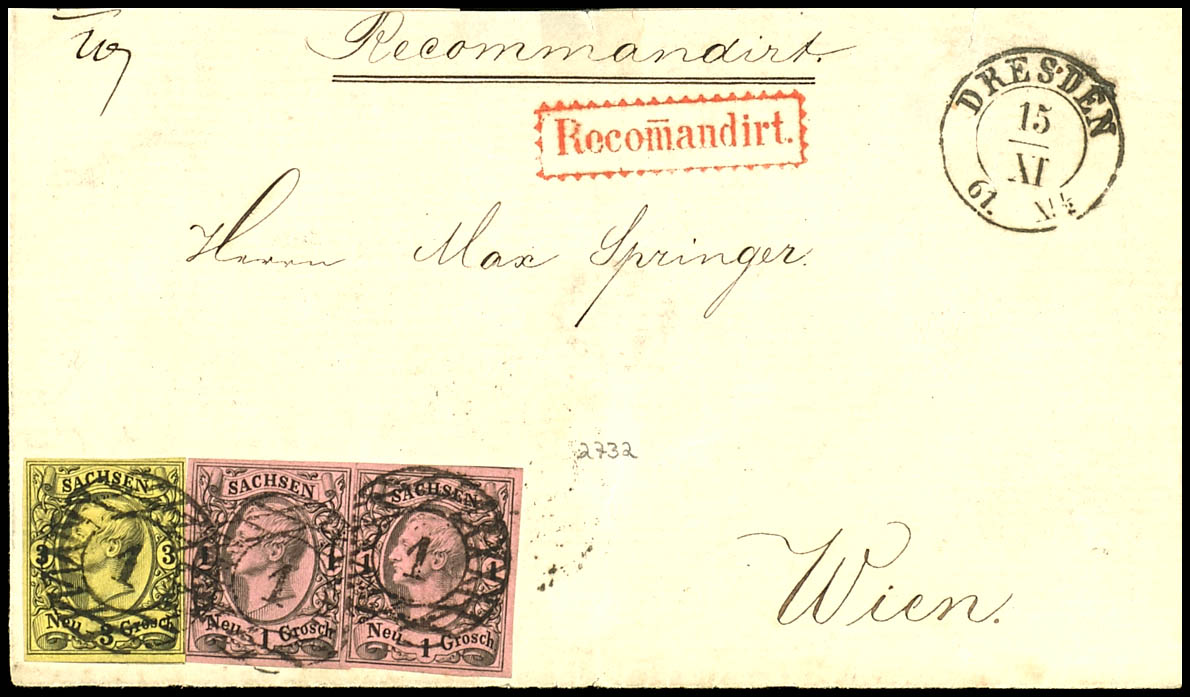 Recommandirt.
Recom̄andirt.
DRESDEN
15
XI
61.
Herrn Max Springer.
2732
SACHSEN
3 3
1
Neu 3 Grosch
SACHSEN
1 1
1
Neu 1 Grosch
SACHSEN
1 1
1
Neu 1 Grosch
Wien.